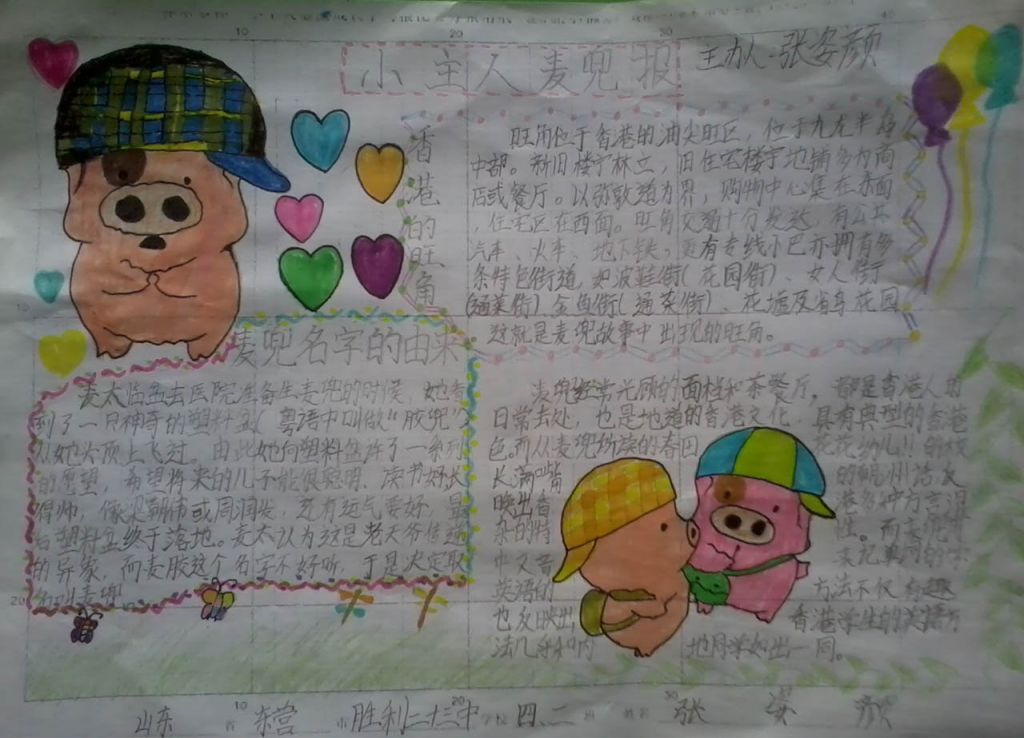 小主人麦兜报
主办人:张姿颜
香港的旺角
旺角位于香港的油尖旺区，位于九龙半岛
中部。新旧楼宇林立，旧住宅楼宇地铺多为商
店或餐厅。以弥敦道为界，购物中心集在东面
，住宅区在西面。旺角交通十分发达，有公共
汽车、火车、地下铁，更有专线小巴亦拥有多
条特色街道，如波鞋街(花园街)、女人街
(通菜街)金鱼街(通菜街)、花墟及雀鸟花园
这就是麦兜故事中出现的旺角。
麦兜名字的由来
麦太临盆去医院准备生麦兜的时候，她看
到了一只神奇的塑料盆(粤语中叫做"胶兜")
从她头顶上飞过。由此她向塑料盆许了一系列
的愿望，希望将来的儿子能很聪明，读书好长
得帅，像梁朝伟或周润发，还有运气要好，最
后塑料盆终于落地。麦太认为这是老天爷传递
的异象，而麦胶这个名字不好听，于是决定取
名叫麦兜
麦兜经常光顾的面档和茶餐厅，都是香港人的
日常去处，也是地道的香港文化，具有典型的香港
色。而从麦兜所读的春田 花花幼儿园的校
长满嘴 的
映出香 港多种方言混
杂的特 性。而
中又看
英语的 方法不仅有趣
也反映出 香港学生的英语方
法几乎和内 地同学如出一同。
山东 省 东营 市 胜利二十三中 学校 四.二 班 姓名 张 姿 颜